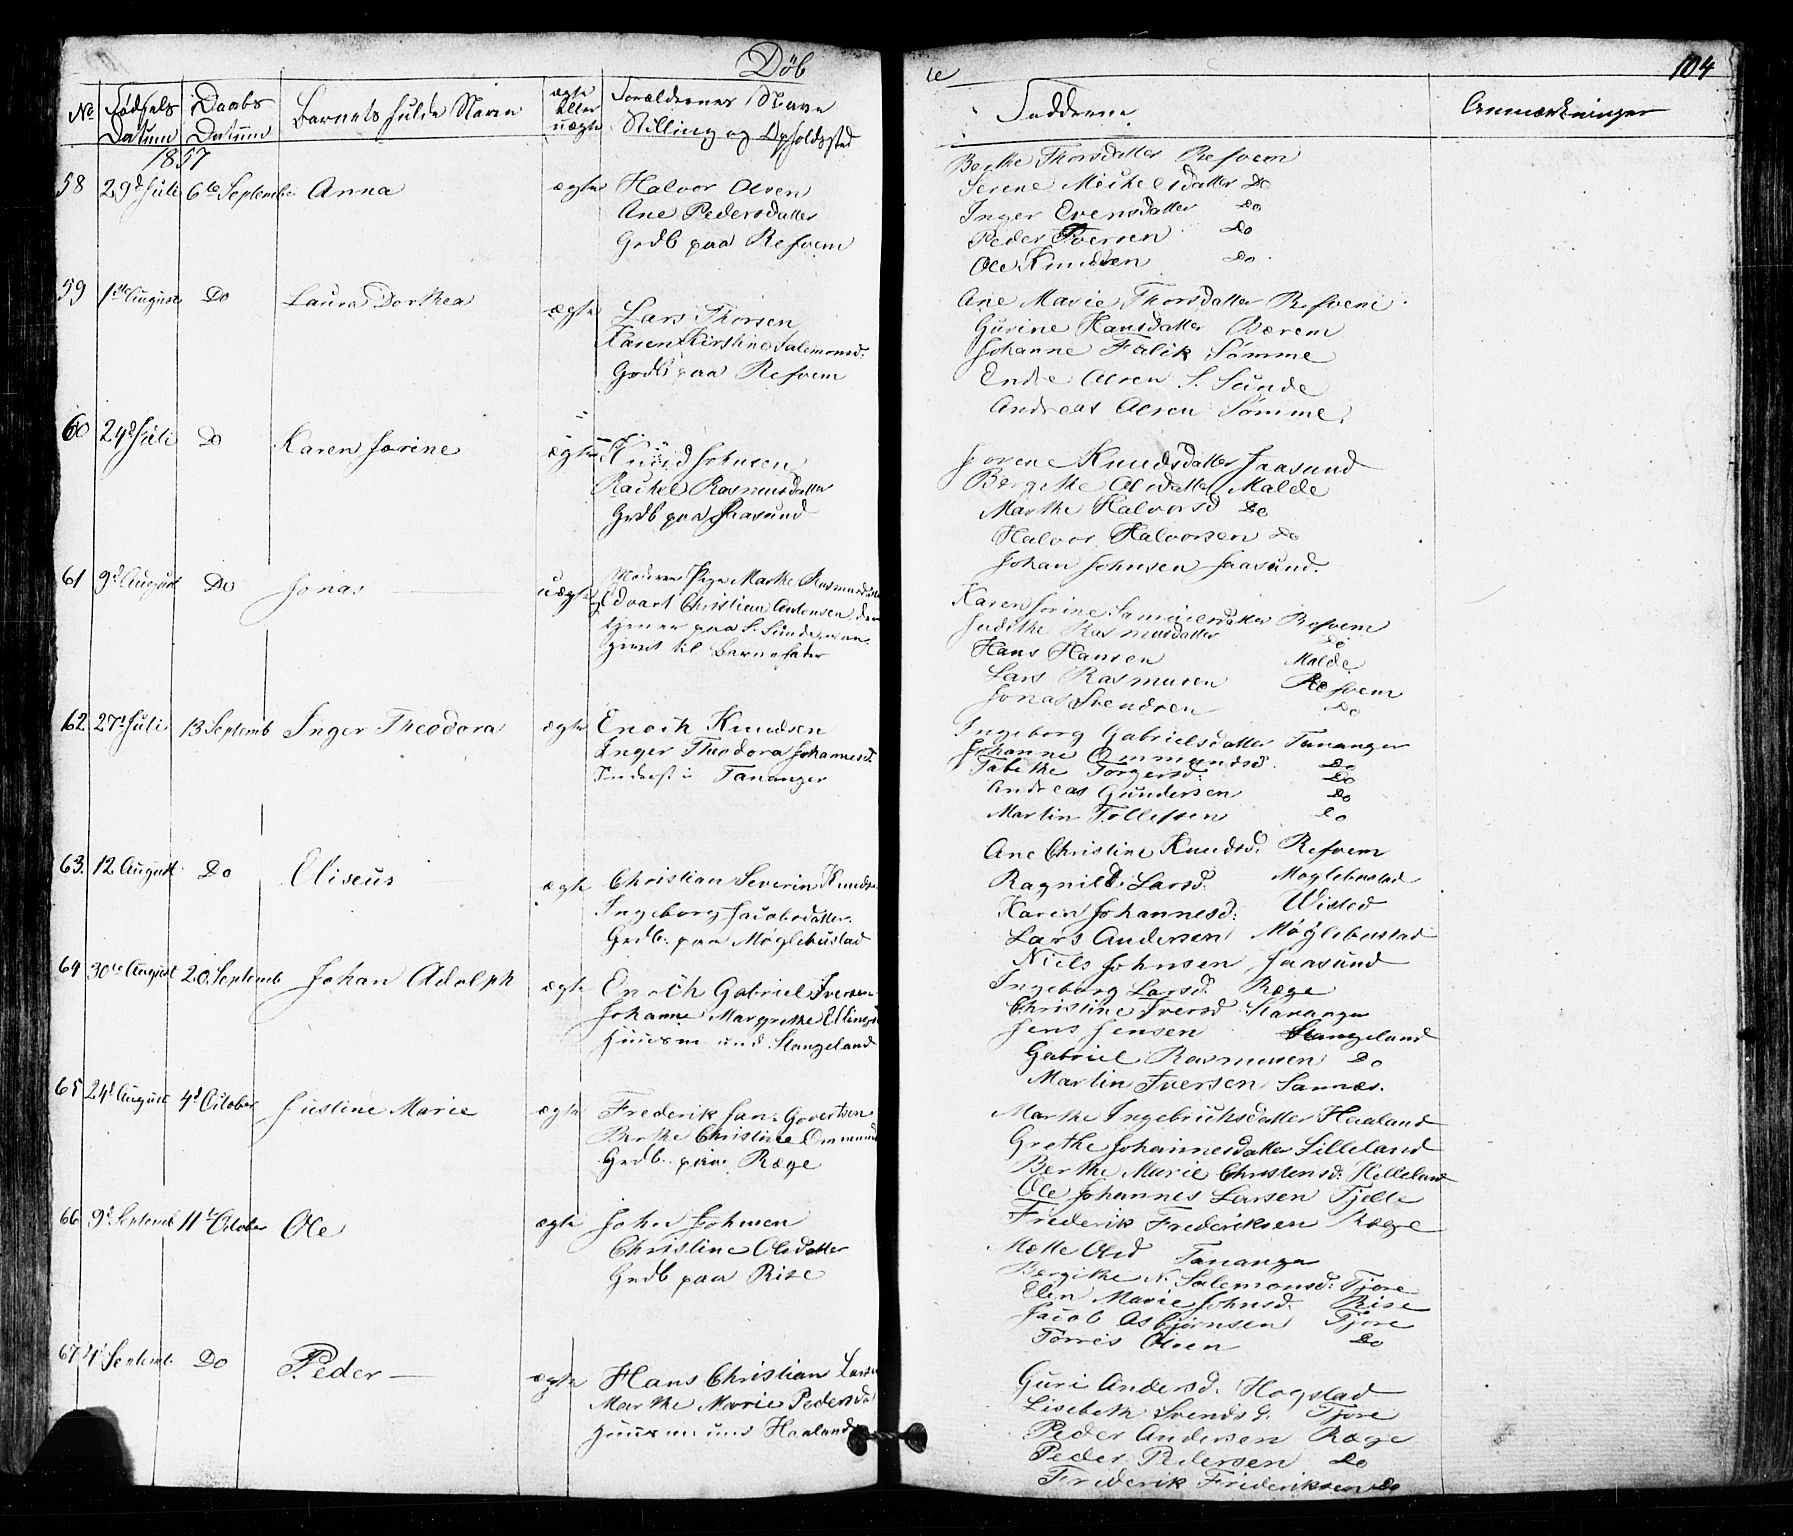 Døb
No Fødsels Datum Daabs Datum Barnets fulde Navn ægte Eller uægte Forældrenes Navn Stilling og Opholdssted
1857
58 29d Juli 6te Septemb Anna ægte Halvor Olsen
Ane Pedersdatter
Grdb paa Refsvem
59 1ste August Do Laura Dorthea ægte Lars Thorsen
Karen Kirstine Salemonsd.
Grdb paa Refsvem
60 24d Juli Do Karen Jorine ægte Knud Johnsen
Rachel Rasmusdatter
Grdb paa Jaasund
61 9d August Do Jonas uægte Moderen Pige Marthe Rasmusdatter
Edvart Christian Antonsen, der
tjener paa S. Sunde, er an-
givet til Barnefader
62 27d Juli 13 Septemb Inger Theodora ægte Enoch Knudsen
Inger Theodora Johannesd.
Inderst i Tananger
63. 12 August Do Eliseus ægte Christian Severin Knuds
Ingeborg Jacobsdatter
Grdb. paa Møglebustad
64 30te August 20 Septemb Johan Adolph ægte Enoch Gabriel Iversen
Johanne Margrethe Ellings
Huusm und. Stangeland
65 24d August 4d October Justine Marie ægte Frederik Jan Govertsen
Berthe Christine Ommund
Grdb. paa Ræge
66 9d Septemb 11te October Ole ægte John Johnsen
Christine Olsdatter
Grdb paa Rise
67 4d Septemb. Do Peder ægte Hans Christian Larsen
Marthe Marie Pedersda
Huusm und Haaland
te 104
Faddere Anmærkninger
Berthe Thorsdatter Refsvem
Serene Michelsdatter Do
Inger Evensdatter Do
Peder Iversen Do
Ole Knudsen Do
Ane Marie Thorsdatter Refsvem
Gurine Hansdatter Bærem
Johanne Falik Sømme
Endre Olsen S. Sunde
Andreas Olsen Sømme
Jorene Knudsdatter Jaasund
Bergithe Olsdatter Malde
Marthe Halvorsd Do
Halvor Halvorsen Do
Johan Johnsen Jaasund.
Karen Jorine Samuelsdatter Refsvem
Judithe Rasmusdatter Do
Hans Hansen Malde
Lars Rasmusen Refsvem
Jonas Svendsen Do
Ingeborg Gabrielsdatter Tananger
Johanne Ommundsd. Do
Tabithe Torgersd: Do
Andreas Gundersen Do
Martin Tollefsen Do
Ane Christine Knudsd. Refsvem
Ragnild Larsd. Møglebustad
Karen Johannesd: Wisted
Lars Andersen Møglebustad
Niels Johnsen Jaasund
Ingeborg Larsd. Ræge
Christine Iversd Stavanger
Jens Jensen Stangeland
Gabriel Rasmusen Do
Martin Iversen Sannæs.
Marthe Ingebrichtsdatter Haaland
Grethe Johannesdatter Lilleland
Berthe Marie Christensd: Helleland
Ole Johannes Larsen Tjelte
Frederik Frederiksen Ræge
Mætte Olsd Tananger
Bergithe N. Salemonsd: Tjore
Elen Marie Johnsd. Rise
Jacob Asbjørnsen Tjore
Tørres Olsen Do
Guri Andersd. Hogstad
Lisebeth Svendsd. Tjore
Peder Andersen Ræge
Peder Pedersen Do
Frederik Frideriksen Do